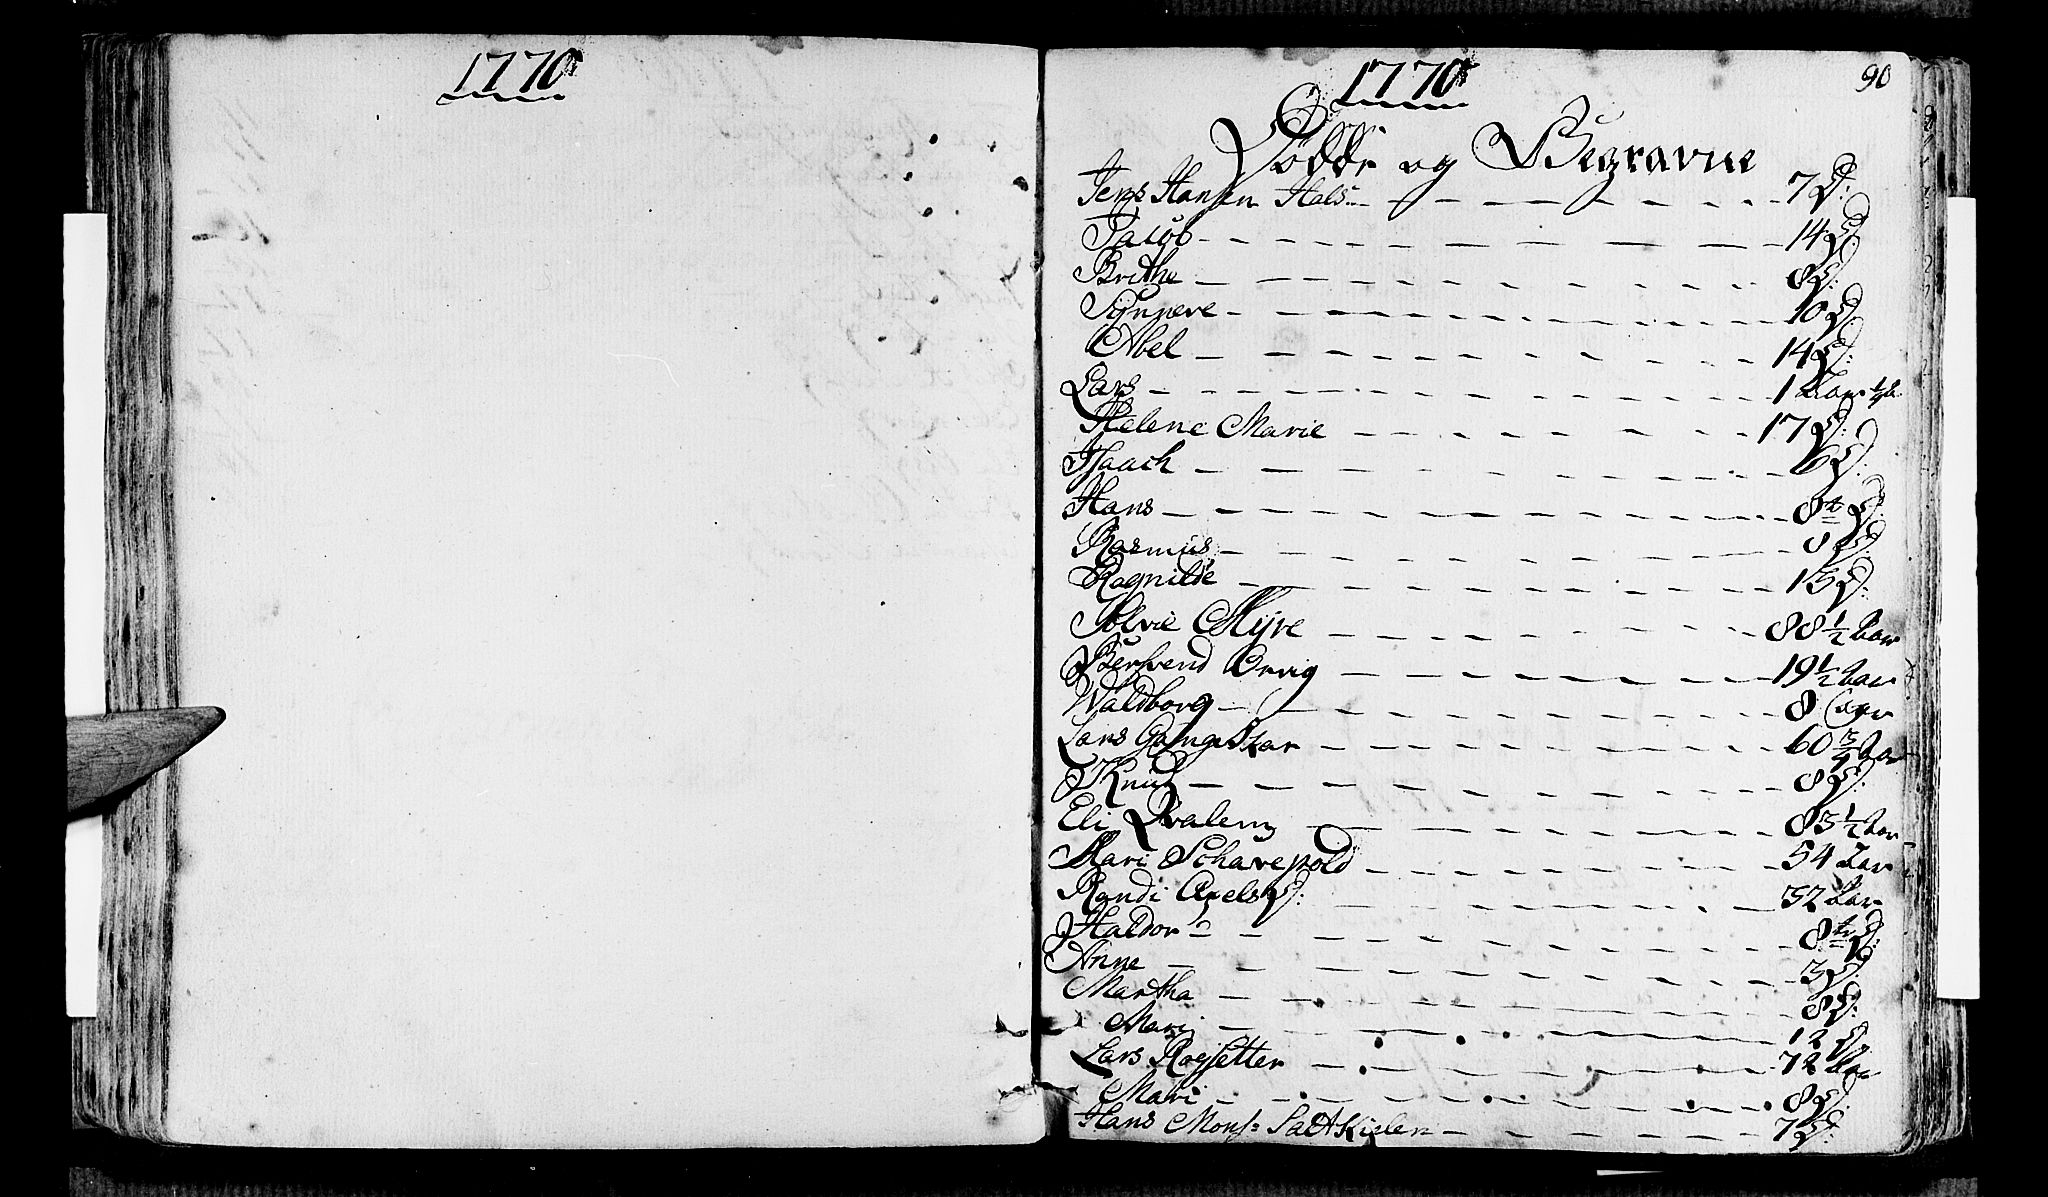 1770
1770 90
Dödde og Begravne
Jens Hansen Hals 7 D:
Jacob 14 D:
Brithe 8 D:
Synneve 10 D:
Abel 14 D:
Lars 1 Aar
Helene Marie 17 D:
Isaach 6 D:
Hans 8 D:
Rasmus 8 D:
Ragnilde 13 D:
Solvie Myre 88 1/2 Aar
Bersvend Orvig 19 1/2 Aar
Waldborg 8 Aar
Lars 60 3/4 Aar
Knud 8 D:
Eli Qvalen 83 1/2 Aar
Mari 54 Aar
Randi Axels D: 32 Aar
Haldor 8 D:
Anne 3 D:
Martha 8 D:
Mari 12 D:
Lars Rogsetter 72 Aar
Mari 8 D:
Hans Mons: 7 D: